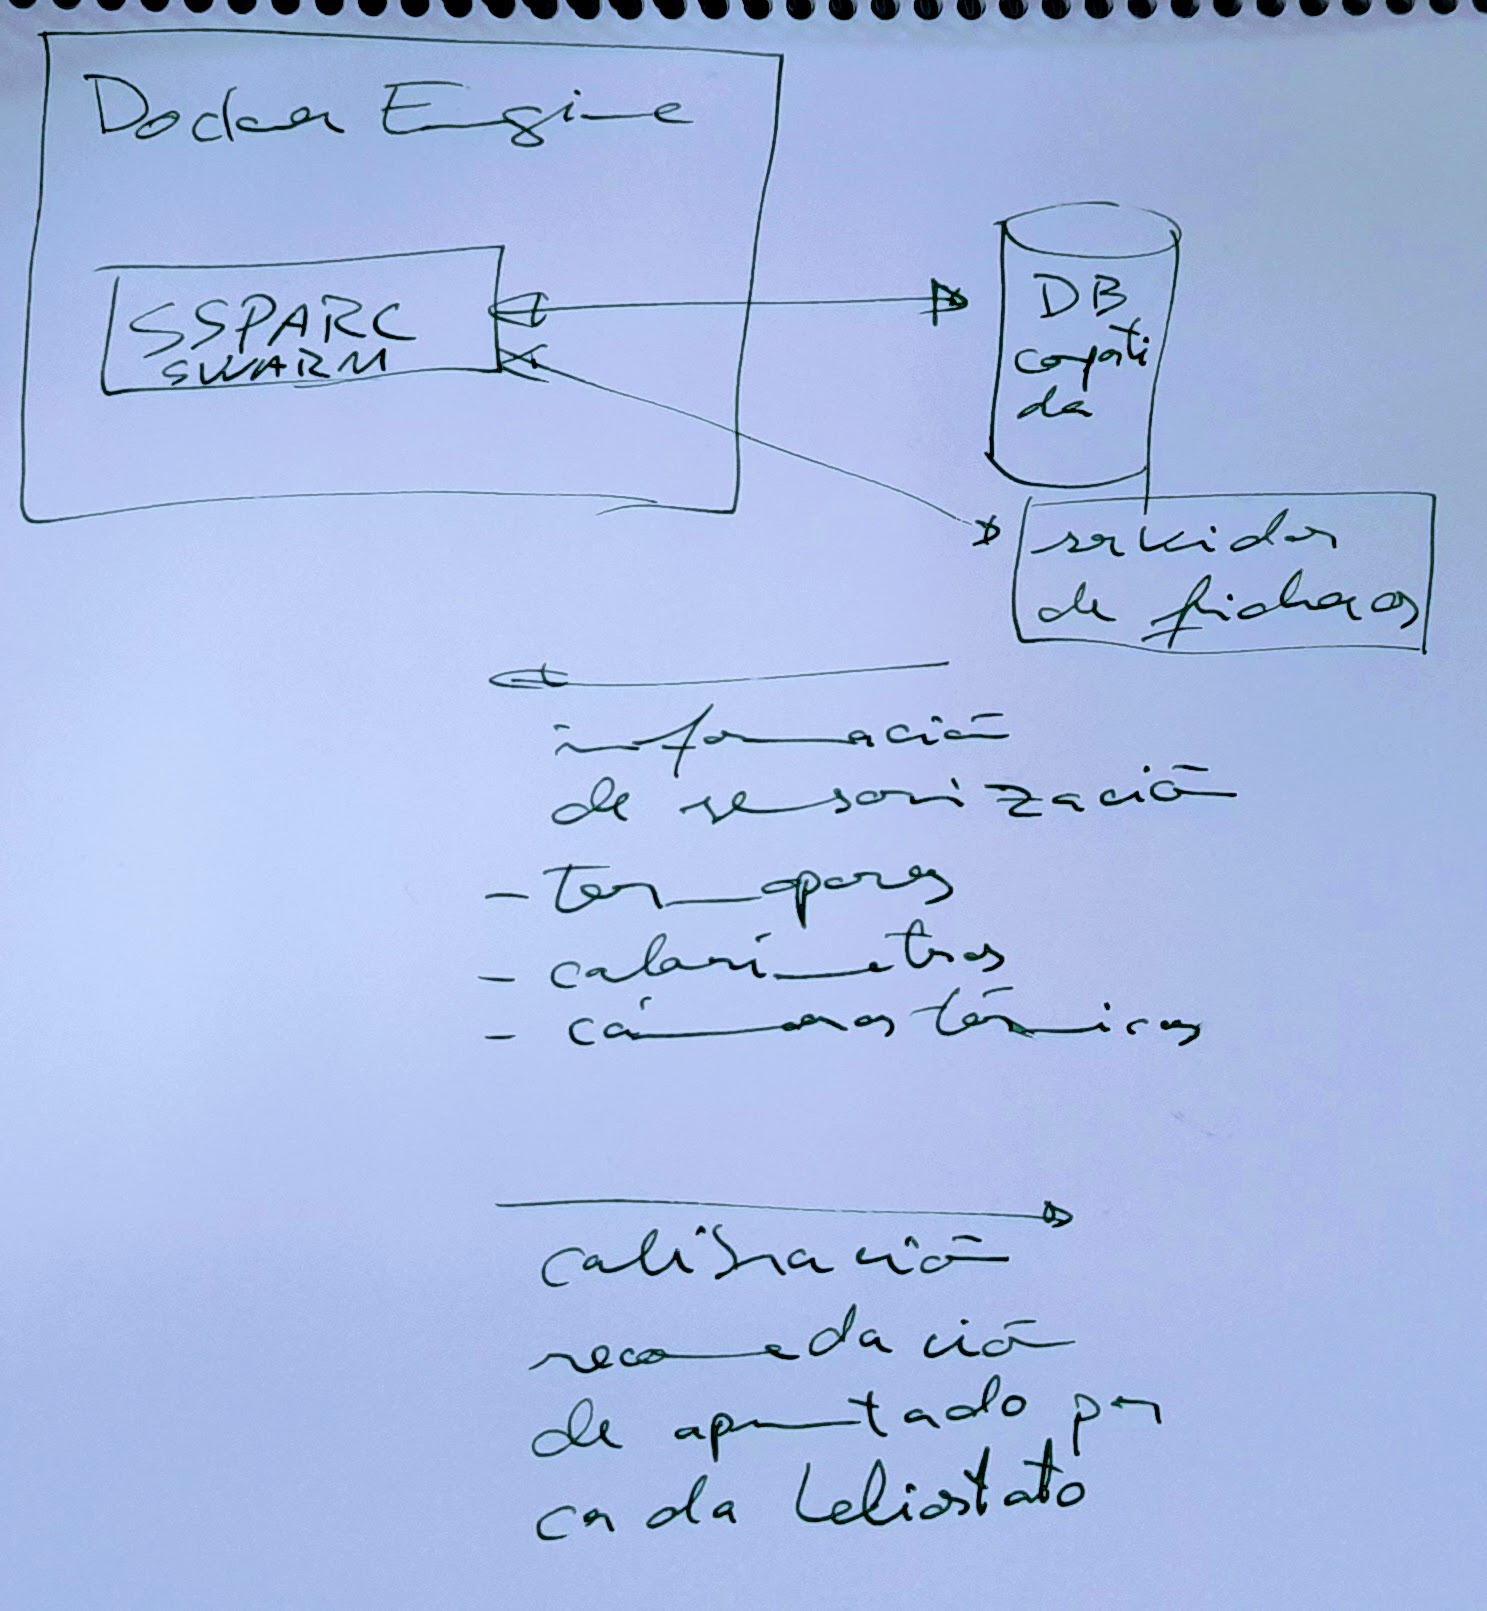 Docker Engine
SSPARC
SWARM
DB
comparti
da
servidor
de ficheros
información
de sensorización
- termopares
- calorímetros
- cámaras térmicas
calibración
recomendación
de apuntado por
cada heliostato